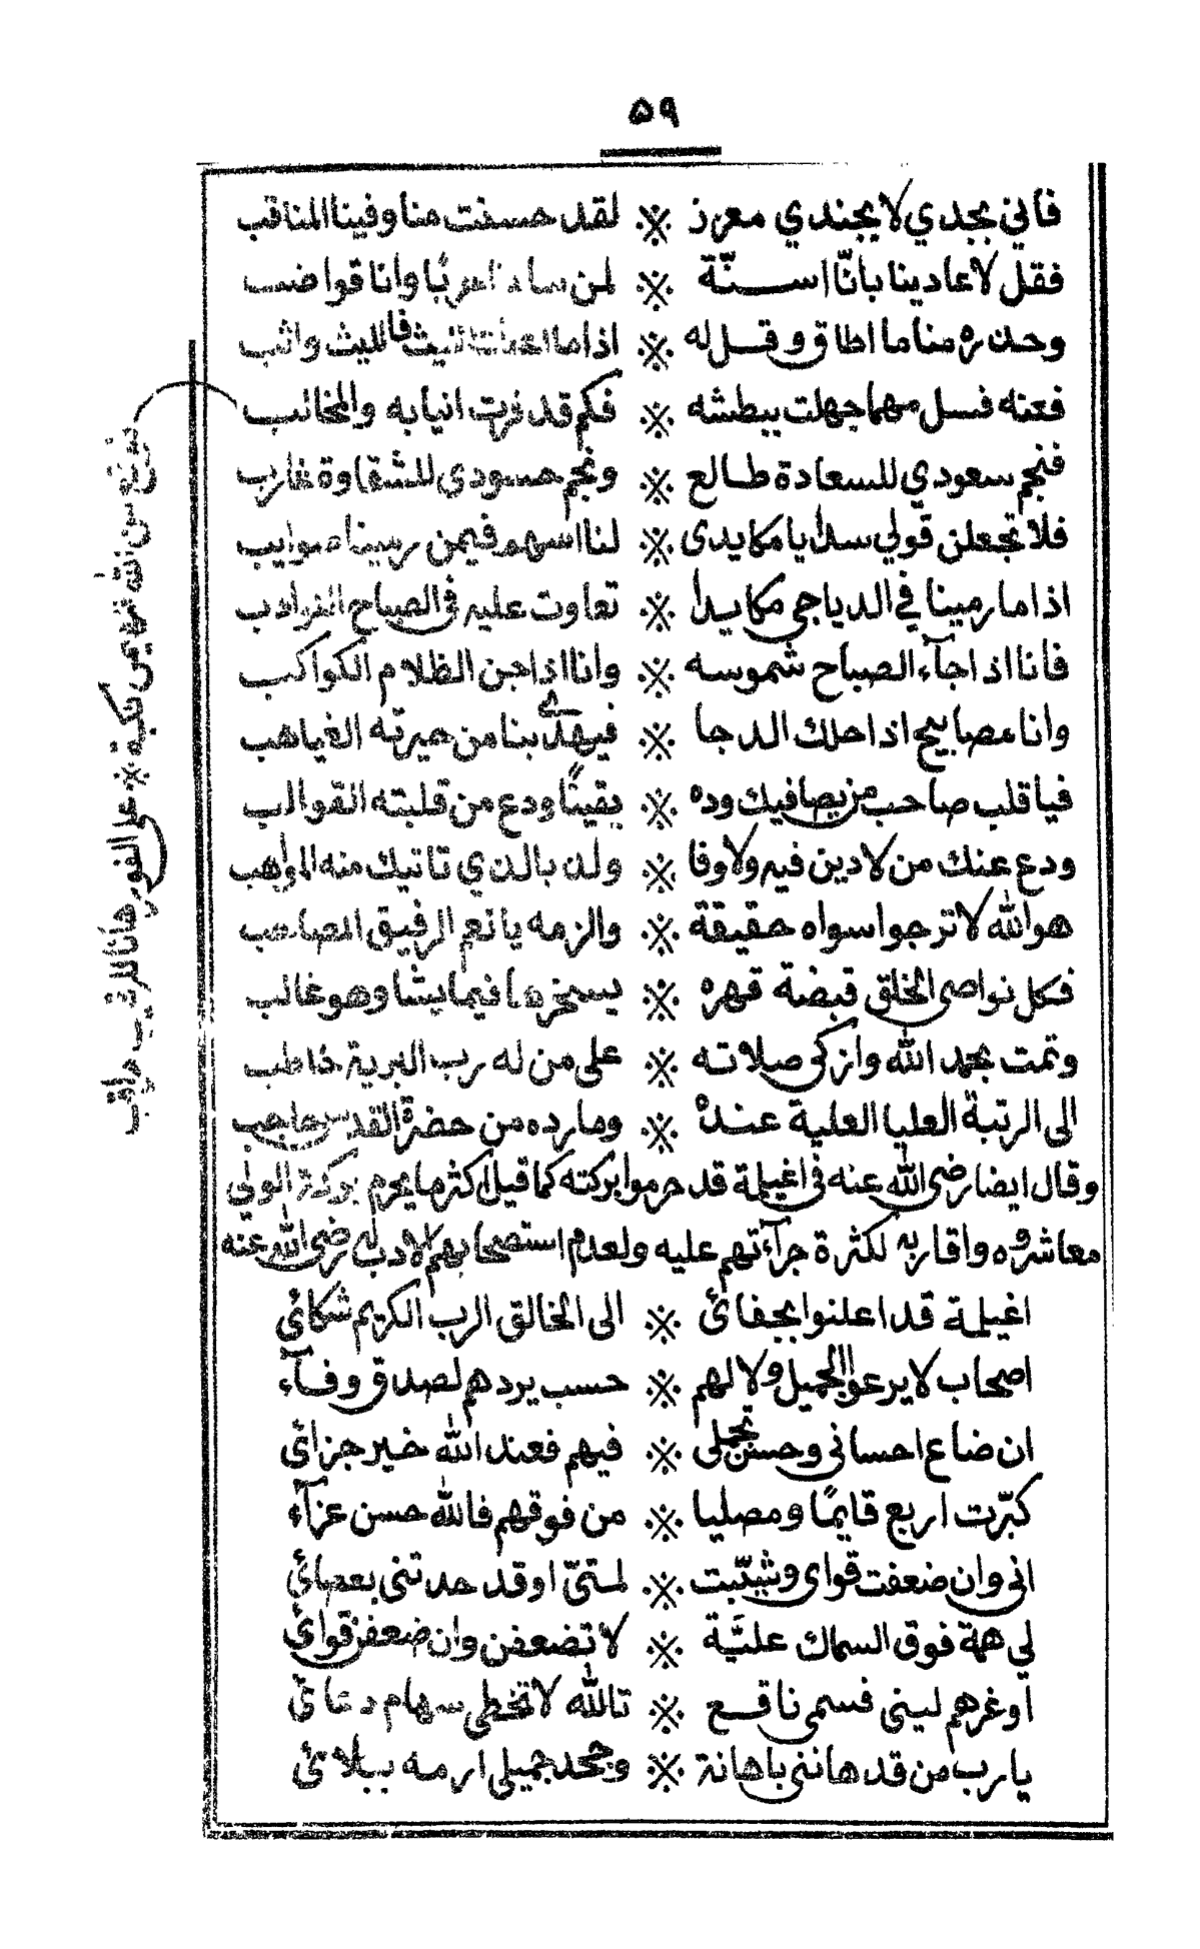 ٥٩
فأني بجدي لا بجندي معزز ※ لقد حسنت منا وفينا المناقب
فقل لاعادينا بانّا اسنّة ※ لمن ساد وانا قواضب
وحذره منا ما اطاق وقل له ※ اذا ما الليث فالليث واثب
فعنه فسل مهما جهلت ببطشه ※ فكم قد فرت انيابه والمخالب
فنجم سعودي للسعادة طالع ※ ونجم حسودى للشقاوة غارب
فلا تجعلن قولي سدا يا مكايدى ※ لنا اسهم فيمن رمينا صوايب
اذا ما رمينا في الدياجي مكايدا ※ تعاوت عليه فى الصباح
فانا اذا جآء الصباح شموسه ※ وانا اذا جن الظلام الكواكب
وانا مصابيح اذا حلك الدجا ※ فيهدى بنا من حيرته الغياهب
فيا قلب صاحب من يصافيك وده ※ يقينًا ودع من قلبته القوالب
ودع عنك من لا دين فيه ولا وفا ※ ولذ بالذي تاتيك منه المواهب
هو الله لا ترجوا سواه حقيقة ※ والزمه يا نعم الرفيق المصاحب
فكل نواصى الخلق قبضة قهره ※ يسخرها فيما يشا وهو غالب
وتمت بحمد الله وازكى صلاته ※ على من له رب البرية خاطب
الى الرتبة العليا العلية عنده ※ وما رده من حضرة القدس حاجب
وقال ايضا رضى الله عنه فى اغيلمة قد حرموا بركته كما قيل اكثر ما يحرم بركة الولي
معاشروه واقاربه لكثرة جرآءتهم عليه ولعدم استصحابهم لادب له رضى الله عنه
اغيلمة قد اعلنوا بجفائ ※ الى الخالق الرب الكريم شكائي
اصحاب لا يرعوا الجميل ولا لهم ※ حسب يردهم لصدق وفآء
ان ضاع احسانى وحسن تجملى ※ فيهم فعند الله خير جزائي
كبّرت اربع قايمًا ومصليا ※ من فوقهم فالله حسن عزآء
انى وان ضعفت قواى وشيّبت ※ لمتىّ او قد حدتنى بعصائي
لي همة فوق السماك عليّة ※ لا تضعفن وان ضعفن قوائ
اوغرهم لينى فسمى ناقع ※ تالله لا تخطى سهام دعائي
يا رب من قد هاننى باهانة ※ وجحد جميلى ارمه ببلائي
من الله نكبة ※ على الفور ها انا للرقيب مراقب